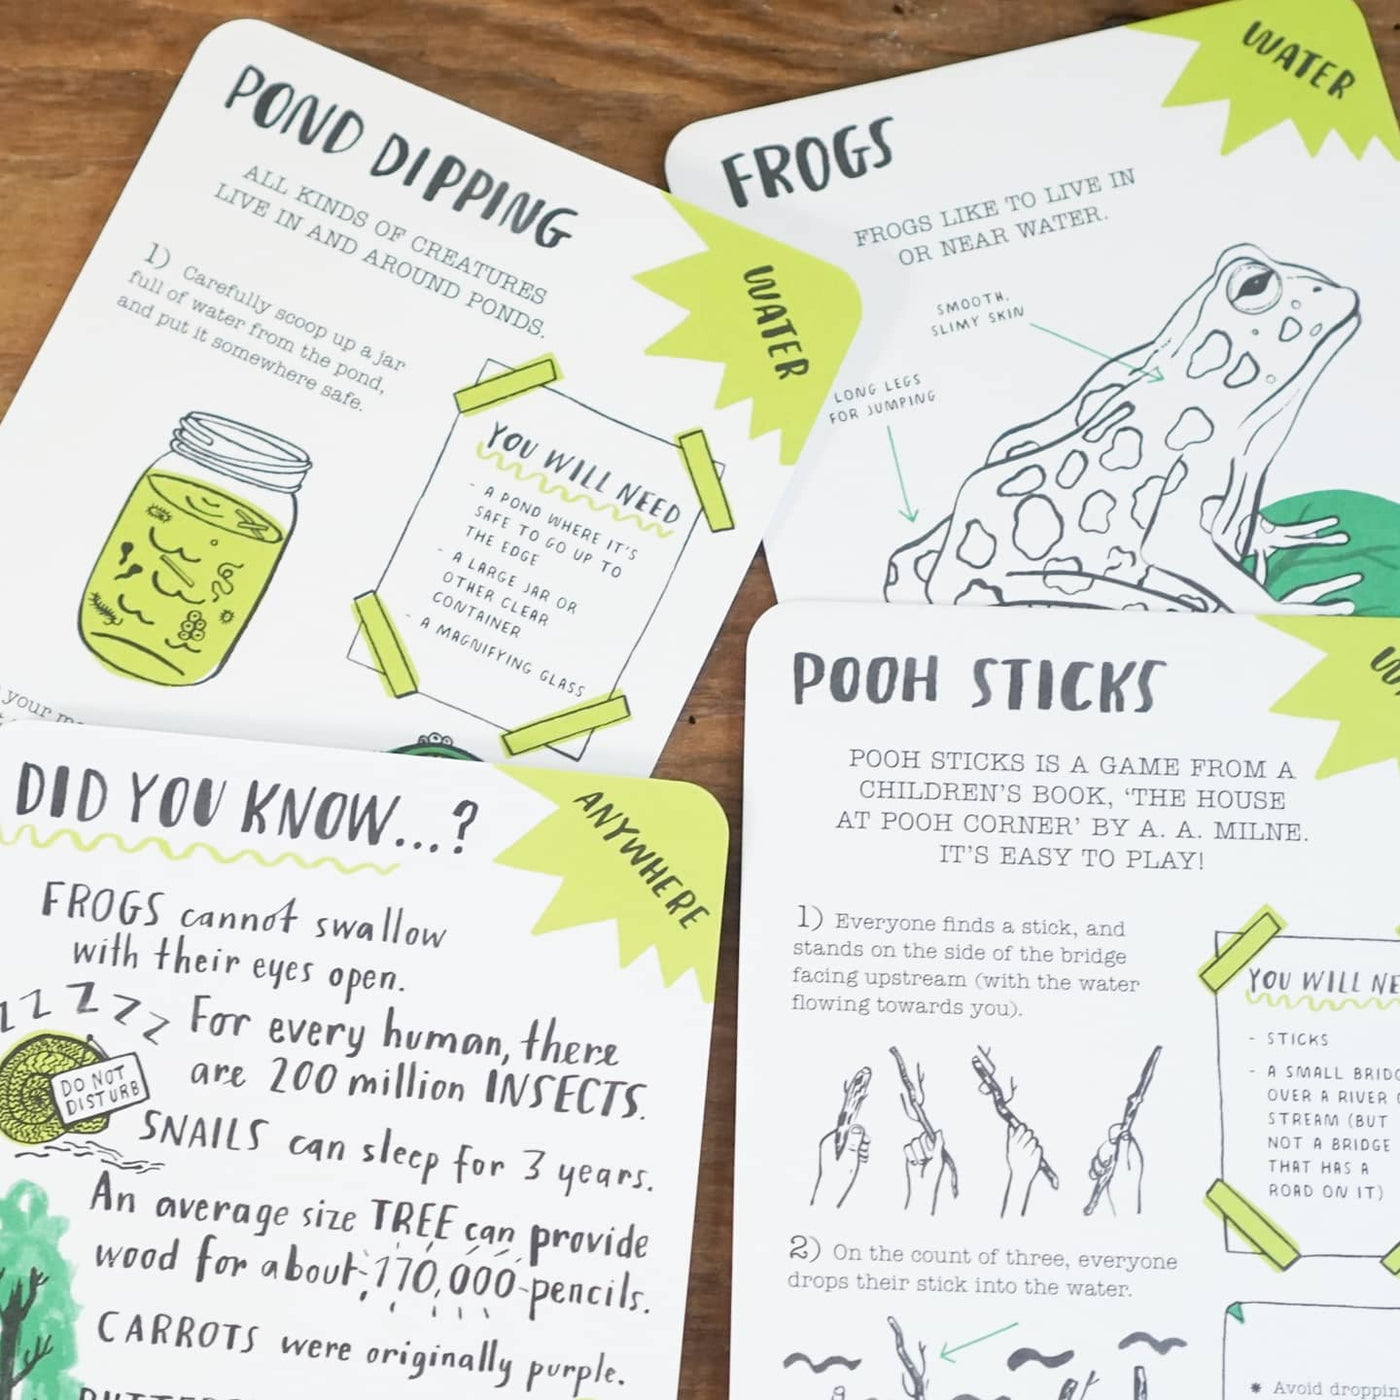 POND DIPPING
ALL KINDS OF CREATURES
LIVE IN AND AROUND PONDS.
1) Carefully scoop up a jar
full of water from the pond,
and put it somewhere safe.
YOU WILL NEED
- A POND WHERE IT'S
SAFE TO GO UP TO
THE EDGE
- A LARGE JAR OR
OTHER CLEAR
CONTAINER
- A MAGNIFYING GLASS
your
WATER
FROGS
FROGS LIKE TO LIVE IN
OR NEAR WATER.
SMOOTH,
SLIMY SKIN
LONG LEGS
FOR JUMPING
WATER
DID YOU KNOW...?
ANYWHERE
FROGS cannot swallow
with their eyes open.
ZZZZZ
For every human, there
are 200 million INSECTS.
DO NOT
DISTURB
SNAILS can sleep for 3 years.
An average size TREE can provide
wood for about 170,000 pencils.
CARROTS were originally purple.
POOH STICKS
POOH STICKS IS A GAME FROM A
CHILDREN'S BOOK, 'THE HOUSE
AT POOH CORNER' BY A. A. MILNE.
IT'S EASY TO PLAY!
1) Everyone finds a stick, and
stands on the side of the bridge
facing upstream (with the water
flowing towards you).
YOU WILL NE
- STICKS
- A SMALL BRIDG
OVER A RIVER
STREAM (BUT
NOT A BRIDGE
THAT HAS A
ROAD ON IT)
2) On the count of three, everyone
drops their stick into the water.
* Avoid droppin